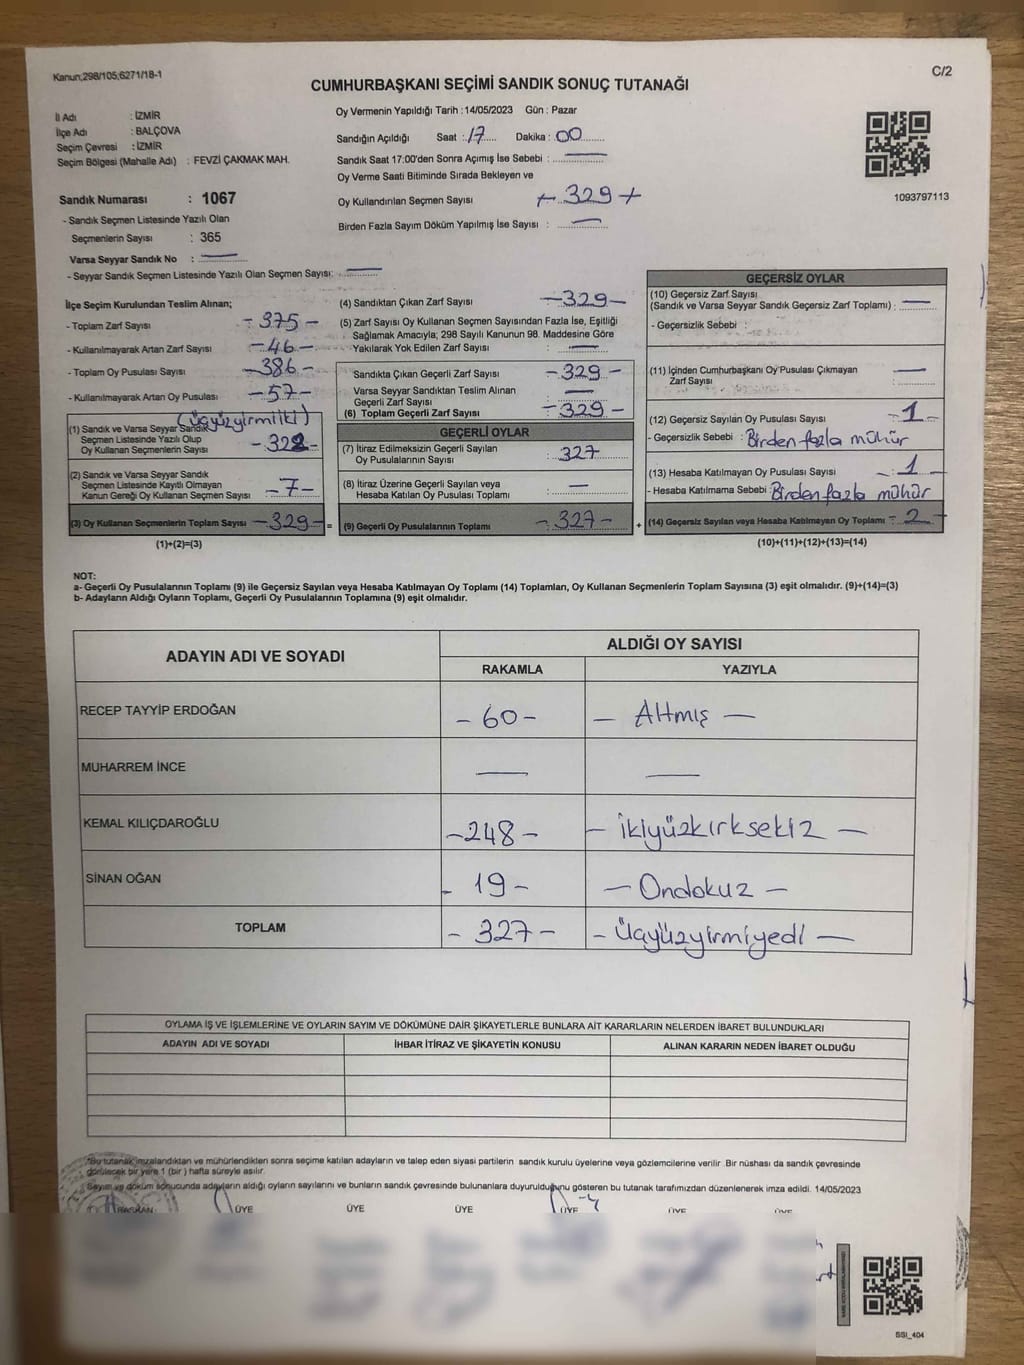 Kanun;298/105;6271/18-1
C/2
CUMHURBAŞKANI SEÇİMİ SANDIK SONUÇ TUTANAĞI
İl Adı : İZMİR
İlçe Adı : BALÇOVA
Seçim Çevresi : İZMİR
Seçim Bölgesi (Mahalle Adı) : FEVZİ ÇAKMAK MAH.
Sandık Numarası : 1067
- Sandık Seçmen Listesinde Yazılı Olan
Seçmenlerin Sayısı : 365
Varsa Seyyar Sandık No : —
- Seyyar Sandık Seçmen Listesinde Yazılı Olan Seçmen Sayısı: —
Oy Vermenin Yapıldığı Tarih :14/05/2023 Gün : Pazar
Sandığın Açıldığı Saat : 17 Dakika : 00
Sandık Saat 17:00'den Sonra Açımış İse Sebebi : —
Oy Verme Saati Bitiminde Sırada Bekleyen ve
Oy Kullandırılan Seçmen Sayısı + 329 +
Birden Fazla Sayım Döküm Yapılmış İse Sayısı : —
1093797113
İlçe Seçim Kurulundan Teslim Alınan;
- Toplam Zarf Sayısı - 375 -
- Kullanılmayarak Artan Zarf Sayısı - 46 -
- Toplam Oy Pusulası Sayısı - 386 -
- Kullanılmayarak Artan Oy Pusulası - 57 -
(üçyüzyirmiiki)
(1) Sandık ve Varsa Seyyar Sandık
Seçmen Listesinde Yazılı Olup
Oy Kullanan Seçmenlerin Sayısı - 322 -
(2) Sandık ve Varsa Seyyar Sandık
Seçmen Listesinde Kayıtlı Olmayan
Kanun Gereği Oy Kullanan Seçmen Sayısı - 7 -
(3) Oy Kullanan Seçmenlerin Toplam Sayısı - 329 -
(1)+(2)=(3)
(4) Sandıktan Çıkan Zarf Sayısı - 329 -
(5) Zarf Sayısı Oy Kullanan Seçmen Sayısından Fazla İse, Eşitliği
Sağlamak Amacıyla; 298 Sayılı Kanunun 98. Maddesine Göre
Yakılarak Yok Edilen Zarf Sayısı : —
Sandıkta Çıkan Geçerli Zarf Sayısı - 329 -
Varsa Seyyar Sandıktan Teslim Alınan
Geçerli Zarf Sayısı : —
(6) Toplam Geçerli Zarf Sayısı - 329 -
GEÇERLİ OYLAR
(7) İtiraz Edilmeksizin Geçerli Sayılan
Oy Pusulalarının Sayısı : 327
(8) İtiraz Üzerine Geçerli Sayılan veya
Hesaba Katılan Oy Pusulası Toplamı : —
= (9) Geçerli Oy Pusulalarının Toplamı - 327 -
GEÇERSİZ OYLAR
(10) Geçersiz Zarf Sayısı
(Sandık ve Varsa Seyyar Sandık Geçersiz Zarf Toplamı) : —
- Geçersizlik Sebebi :
(11) İçinden Cumhurbaşkanı Oy Pusulası Çıkmayan
Zarf Sayısı : —
(12) Geçersiz Sayılan Oy Pusulası Sayısı - 1 -
- Geçersizlik Sebebi : Birden fazla mühür
(13) Hesaba Katılmayan Oy Pusulası Sayısı - 1 -
- Hesaba Katılmama Sebebi : Birden fazla mühür
+ (14) Geçersiz Sayılan veya Hesaba Katılmayan Oy Toplamı - 2 -
(10)+(11)+(12)+(13)=(14)
NOT:
a- Geçerli Oy Pusulalarının Toplamı (9) ile Geçersiz Sayılan veya Hesaba Katılmayan Oy Toplamı (14) Toplamları, Oy Kullanan Seçmenlerin Toplam Sayısına (3) eşit olmalıdır. (9)+(14)=(3)
b- Adayların Aldığı Oyların Toplamı, Geçerli Oy Pusulalarının Toplamına (9) eşit olmalıdır.
ADAYIN ADI VE SOYADI
ALDIĞI OY SAYISI
RAKAMLA YAZIYLA
RECEP TAYYİP ERDOĞAN - 60 - — Altmış —
MUHARREM İNCE — —
KEMAL KILIÇDAROĞLU - 248 - — ikiyüzkırksekiz —
SİNAN OĞAN - 19 - — Ondokuz —
TOPLAM - 327 - - Üçyüzyirmiyedi —
OYLAMA İŞ VE İŞLEMLERİNE VE OYLARIN SAYIM VE DÖKÜMÜNE DAİR ŞİKAYETLERLE BUNLARA AİT KARARLARIN NELERDEN İBARET BULUNDUKLARI
ADAYIN ADI VE SOYADI İHBAR İTİRAZ VE ŞİKAYETİN KONUSU ALINAN KARARIN NEDEN İBARET OLDUĞU
*Bu tutanak imzalandıktan ve mühürlendikten sonra seçime katılan adayların ve talep eden siyasi partilerin sandık kurulu üyelerine veya gözlemcilerine verilir. Bir nüshası da sandık çevresinde
görülecek bir yere 1 (bir) hafta süreyle asılır.
Sayım ve döküm sonucunda adayların aldığı oyların sayılarını ve bunların sandık çevresinde bulunanlara duyurulduğunu gösteren bu tutanak tarafımızdan düzenlenerek imza edildi. 14/05/2023
BAŞKAN ÜYE ÜYE ÜYE ÜYE ÜYE ÜYE
SSI_404